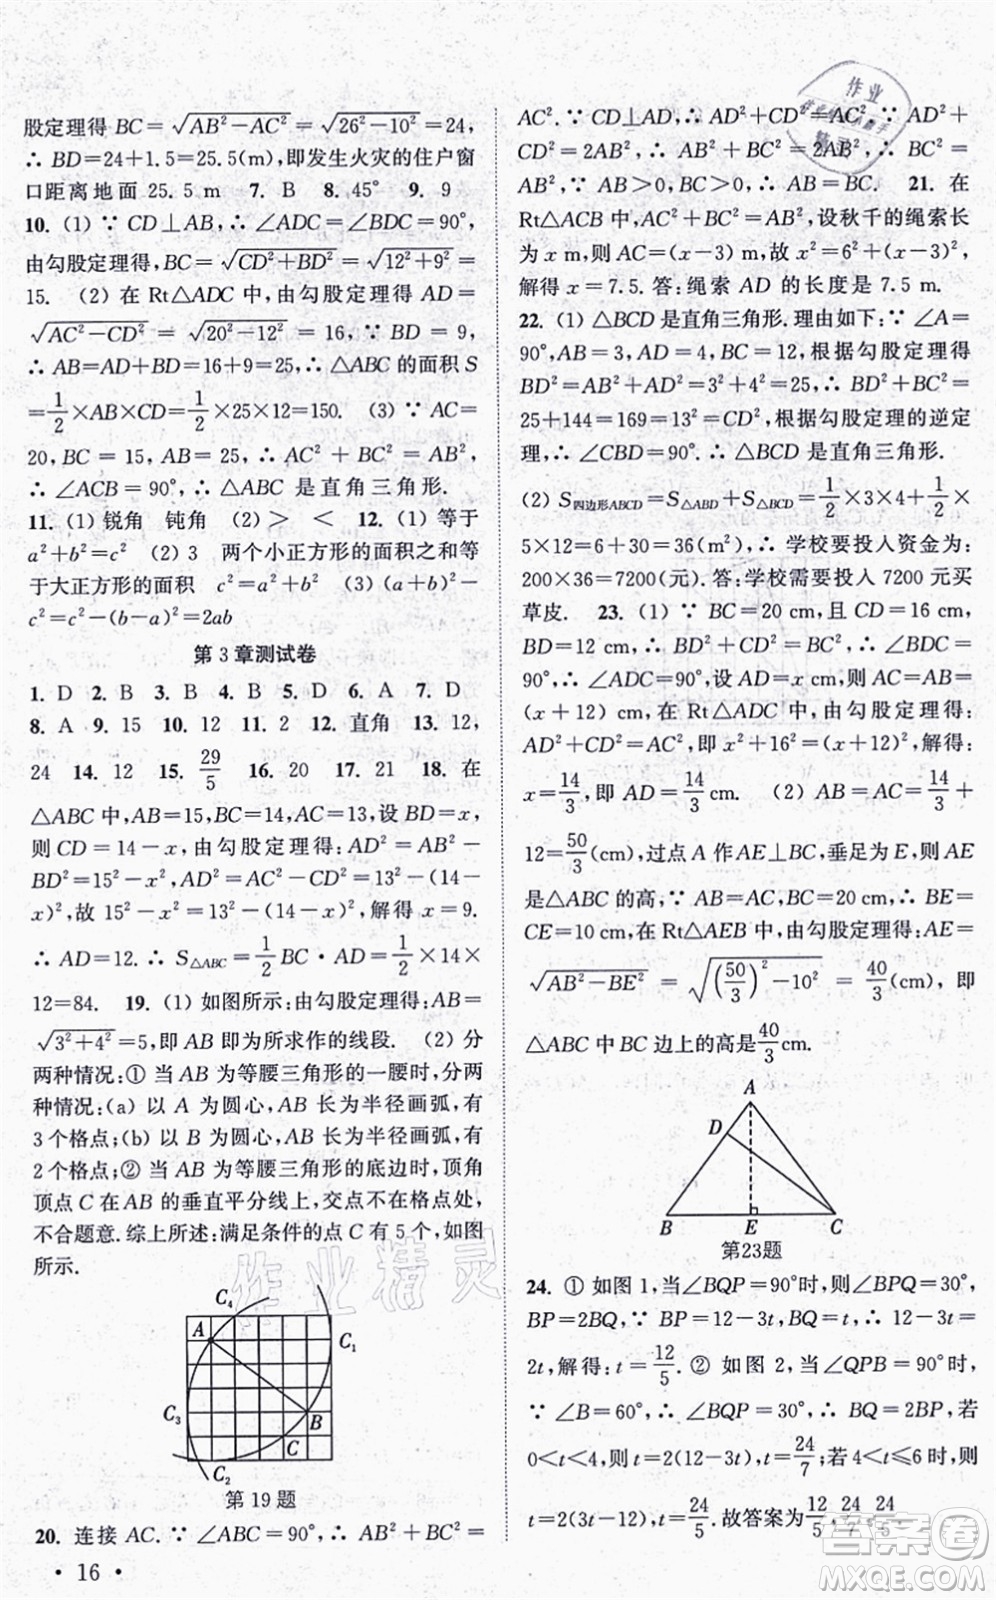 股定理得 BC=√(AB²－AC²)=√(26²－10²)=24,
∴ BD=24+1.5=25.5(m),即发生火灾的住户窗
口距离地面 25.5 m 7. B 8. 45° 9. 9
10. (1) ∵ CD⊥AB,∴ ∠ADC=∠BDC=90°,
由勾股定理得,BC=√(CD²+BD²)=√(12²+9²)=
15. (2) 在 Rt△ADC 中,由勾股定理得 AD=
√(AC²－CD²) = √(20²－12²) = 16, ∵ BD = 9,
∴ AB=AD+BD=16+9=25,∴ △ABC 的面积 S
=1/2×AB×CD=1/2×25×12=150. (3) ∵ AC=
20, BC = 15, AB = 25, ∴ AC² + BC² = AB²,
∴ ∠ACB=90°,∴ △ABC 是直角三角形.
11. (1) 锐角 钝角 (2) > < 12. (1) 等于
a²+b²=c² (2) 3 两个小正方形的面积之和等
于大正方形的面积 c²=a²+b² (3) (a+b)²－
c²=c²－(b－a)² a²+b²=c² (a+b)²－c²=2ab
第 3 章测试卷
1. D 2. B 3. B 4. D 5. D 6. A 7. D
8. A 9. 15 10. 12 11. 2 12. 直角 13. 12,
24 14. 12 15. 29/5 16. 20 17. 21 18. 在
△ABC 中,AB=15,BC=14,AC=13,设 BD=x,
则 CD=14－x,由勾股定理得:AD²=AB²－
BD²=15²－x²,AD²=AC²－CD²=13²－(14－
x)²,故 15²－x²=13²－(14－x)²,解得 x=9.
∴ AD=12.∴ S△ABC=1/2BC·AD=1/2×14×
12=84. 19. (1) 如图所示:由勾股定理得,AB=
√(3²+4²)=5,即 AB 即为所求作的线段. (2) 分
两种情况:① 当 AB 为等腰三角形的一腰时,分两
种情况:(a) 以 A 为圆心,AB 长为半径画弧,有
3 个格点;(b) 以 B 为圆心,AB 长为半径画弧,有
2 个格点;② 当 AB 为等腰三角形的底边时,顶角
顶点 C 在 AB 的垂直平分线上,交点不在格点处,
不合题意.综上所述:满足条件的点 C 有 5 个,如图
所示.
C₄
A
C₁
C₃
B
C
C₂
第 19 题
20. 连接 AC. ∵ ∠ABC=90°,∴ AB²+BC²=
· 16 ·
AC². ∵ CD⊥AD,∴ AD²+CD²=AC². ∵ AD²+
CD²=2AB²,∴ AB²+BC²=2AB²,∴ BC²=
AB², ∵ AB>0, BC>0, ∴ AB=BC. 21. 在
Rt△ACB 中,AC²+BC²=AB²,设秋千的绳索长
为 x m,则 AC=(x－3) m,故 x²=6²+(x－3)²,
解得 x=7.5.答:绳索 AD 的长度是 7.5 m.
22. (1) △BCD 是直角三角形.理由如下:∵ ∠A=
90°,AB=3,AD=4,BC=12,根据勾股定理得
BD²=AB²+AD²=3²+4²=25,∴ BD²+BC²=
25+144=169=13²=CD²,根据勾股定理的逆定
理,∴ ∠CBD=90°.∴ △BCD 是直角三角形.
(2) S四边形ABCD=S△ABD+S△BCD=1/2×3×4+1/2×
5×12=6+30=36(m²),∴ 学校要投入资金为:
200×36=7200(元).答:学校需要投入 7200 元买
草皮. 23. (1) ∵ BC=20 cm,且 CD=16 cm,
BD=12 cm,∴ BD²+CD²=BC²,∴ ∠BDC=
90°,∴ ∠ADC=90°,设 AD=x cm,则 AC=
(x+12) cm,在 Rt△ADC 中,由勾股定理得:
AD²+CD²=AC²,即 x²+16²=(x+12)²,解得:
x=14/3,即 AD=14/3cm. (2) AB=AC=14/3+
12=50/3(cm),过点 A 作 AE⊥BC,垂足为 E,则 AE
是△ABC 的高,∵ AB=AC,BC=20 cm,∴ BE=
CE=10 cm,在 Rt△AEB 中,由勾股定理得:AE=
√(AB²－BE²) = √((50/3)²－10²) = 40/3(cm), 即
△ABC 中 BC 边上的高是40/3cm.
A
D
B E C
第23题
24. ① 如图 1,当∠BQP=90°时,则∠BPQ=30°,
BP=2BQ, ∵ BP=12－3t,BQ=t, ∴ 12－3t=
2t,解得:t=12/5. ② 如图 2,当∠QPB=90°时,
∵ ∠B=60°,∴ ∠BQP=30°,∴ BQ=2BP,若
0<t<4,则 t=2(12－3t),t=24/7;若 4<t≤6 时,
t=2(3t－12),t=24/5.故答案为12/5,24/7,24/5.
作业精灵
答案圈
MXQE.COM